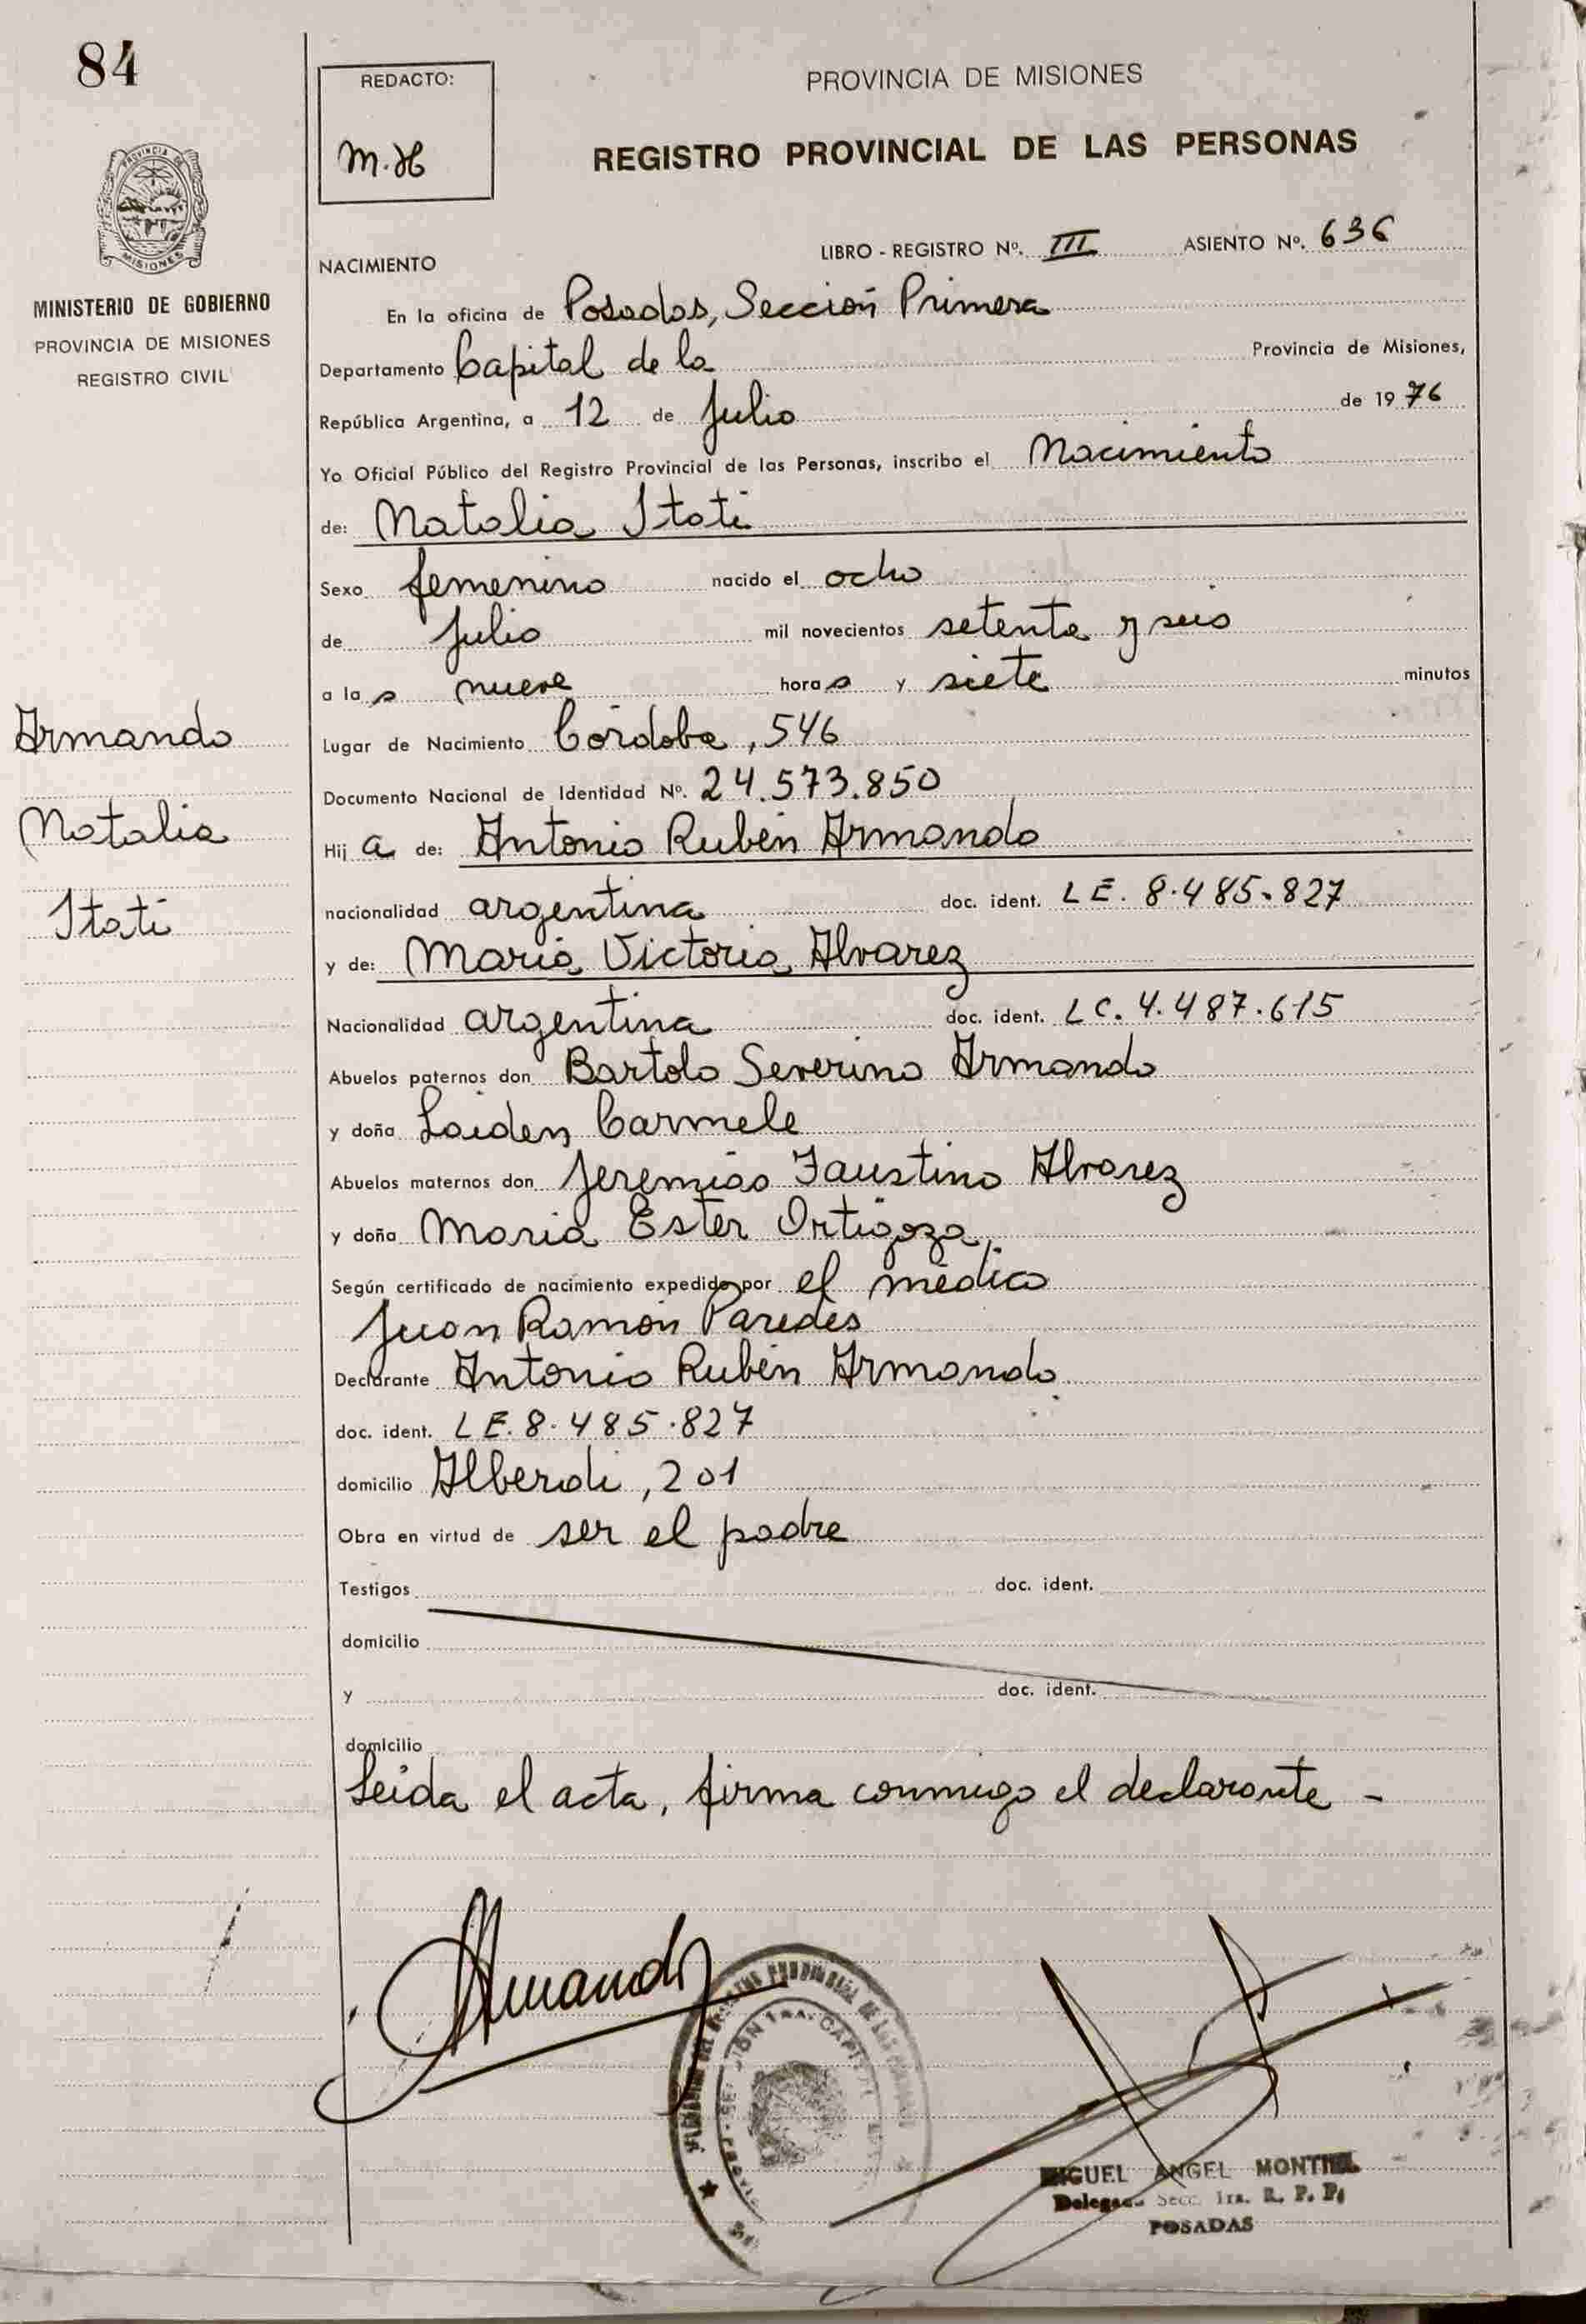 84
REDACTO:
M.H
PROVINCIA DE MISIONES
REGISTRO PROVINCIAL DE LAS PERSONAS
MISIONES
MINISTERIO DE GOBIERNO
PROVINCIA DE MISIONES
REGISTRO CIVIL
NACIMIENTO
LIBRO - REGISTRO Nº. III ASIENTO Nº. 636
En la oficina de Posadas, Sección Primera
Departamento Capital de la Provincia de Misiones,
República Argentina, a 12 de Julio de 1976
Yo Oficial Público del Registro Provincial de las Personas, inscribo el Nacimiento
de: Natalia Itati
Sexo femenino nacido el ocho
de Julio mil novecientos setenta y seis
a las nueve horas y siete minutos
Armando
Natalia
Itati
Lugar de Nacimiento Córdoba, 546
Documento Nacional de Identidad Nº. 24.573.850
Hija de: Antonio Rubén Armando
nacionalidad argentina doc. ident. LE. 8.485.827
y de: María Victoria Alvarez
Nacionalidad argentina doc. ident. LC. 4.487.615
Abuelos paternos don Bartolo Severino Armando
y doña Loiden Carmele
Abuelos maternos don Jeremías Faustino Alvarez
y doña María Ester Ortigoza,
Según certificado de nacimiento expedido por el médico
Juan Ramón Paredes
Declarante Antonio Rubén Armando
doc. ident. LE. 8.485.827
domicilio Alberdi, 201
Obra en virtud de ser el padre
Testigos doc. ident.
domicilio
y doc. ident.
domicilio
Leída el acta, firma conmigo el declarante -
Armando
MIGUEL ANGEL MONTIEL
Delegado Secc. 1ra. R. P. P.
POSADAS